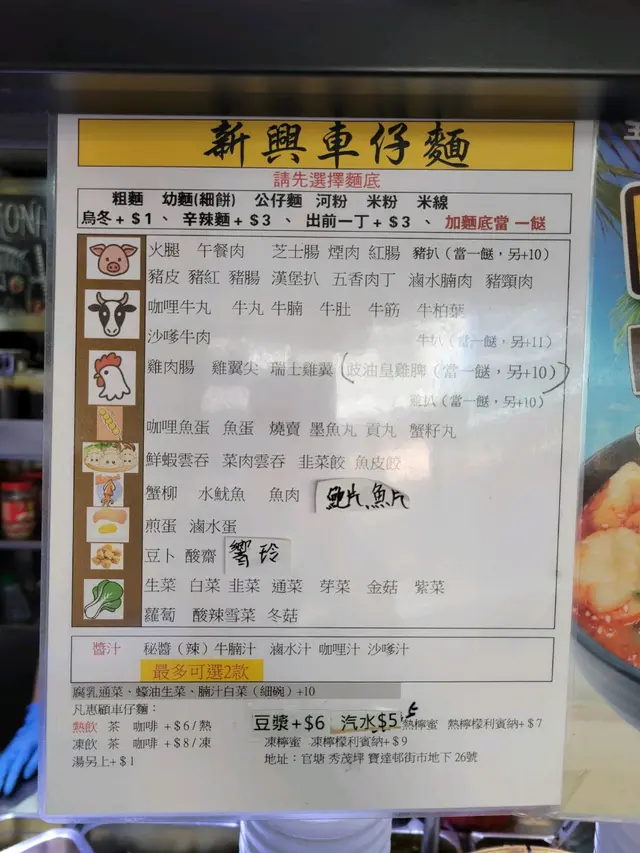 新興車仔麵
請先選擇麵底
粗麵 幼麵(細餅) 公仔麵 河粉 米粉 米線
烏冬+$1、 辛辣麵+$3、 出前一丁+$3、 加麵底當一餸
火腿 午餐肉 芝士腸 煙肉 紅腸 豬扒（當一餸，另+10）
豬皮 豬紅 豬腸 漢堡扒 五香肉丁 滷水腩肉 豬頸肉
咖哩牛丸 牛丸 牛腩 牛肚 牛筋 牛柏葉
沙嗲牛肉 牛扒（當一餸，另+11）
雞肉腸 雞翼尖 瑞士雞翼 (豉油皇雞髀（當一餸，另+10）)
雞扒（當一餸，另+10）
咖哩魚蛋 魚蛋 燒賣 墨魚丸 貢丸 蟹籽丸
鮮蝦雲吞 菜肉雲吞 韭菜餃 魚皮餃
蟹柳 水魷魚 魚肉 鮑片、魚片
煎蛋 滷水蛋
豆卜 酸齋 響玲
生菜 白菜 韭菜 通菜 芽菜 金菇 紫菜
蘿蔔 酸辣雪菜 冬菇
醬汁 秘醬（辣）牛腩汁 滷水汁 咖哩汁 沙嗲汁
最多可選2款
腐乳通菜、蠔油生菜、腩汁白菜（細碗）+10
凡惠顧車仔麵：
熱飲 茶 咖啡 +$6/熱 豆漿+$6 汽水$5 熱檸蜜 熱檸檬利賓納+$7
凍飲 茶 咖啡 +$8/凍 凍檸蜜 凍檸檬利賓納+$9
湯另上+$1 地址：官塘 秀茂坪 寶達邨街市地下 26號